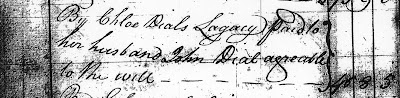 By Chloe Dials Lagacy paid to
her husband John Dial agreable
to the will